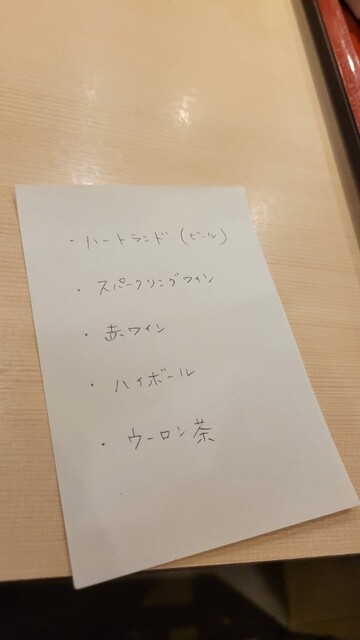 ・ハートランド（ビール）
・スパークリングワイン
・赤ワイン
・ハイボール
・ウーロン茶